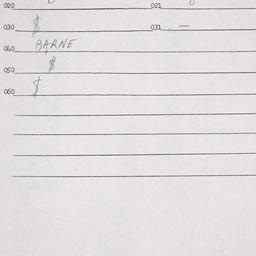 020 021
030 $ 031 . —
040 BARNE
050 $
060 $